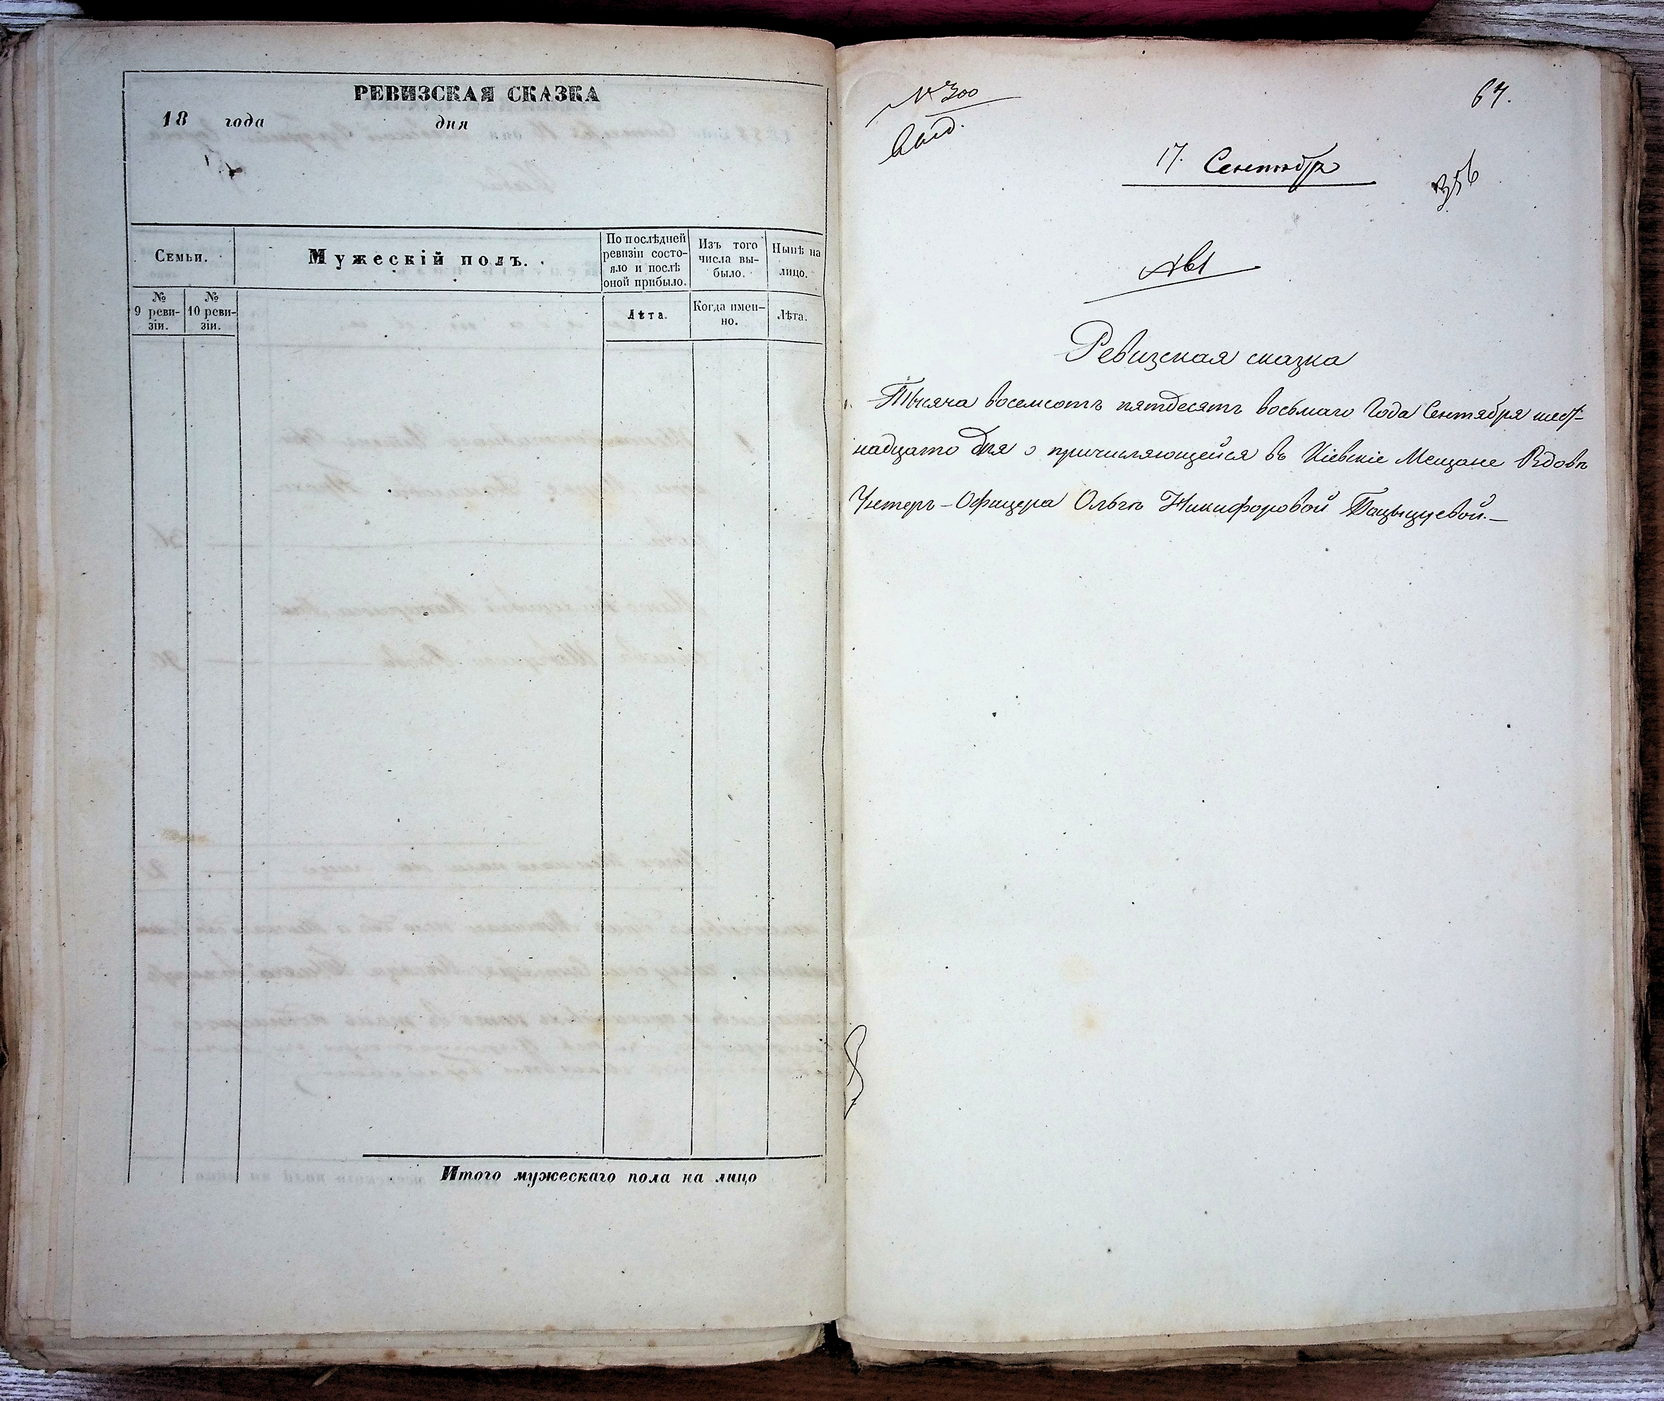 РЕВИЗСКАЯ СКАЗКА
18 года дня
Семьи.
Мужескій полъ.
По послѣдней ревизіи состо-
яло и послѣ оной прибыло.
Изъ того числа вы-
было.
Нынѣ на лицо.
№ 9 реви-
зіи.
№ 10 реви-
зіи.
Лѣта.
Когда имен-
но.
Лѣта.
Итого мужескаго пола на лицо
№ 300
67.
17. Сентября
356
Ревизская сказка
Тысяча восемсотъ пятдесятъ восьмаго Года Сентября шест-
надцато дня о причисляющейся въ Кіевскіе Мещане Вдовѣ
Унтеръ-Офицера Ольгѣ Никифоровой